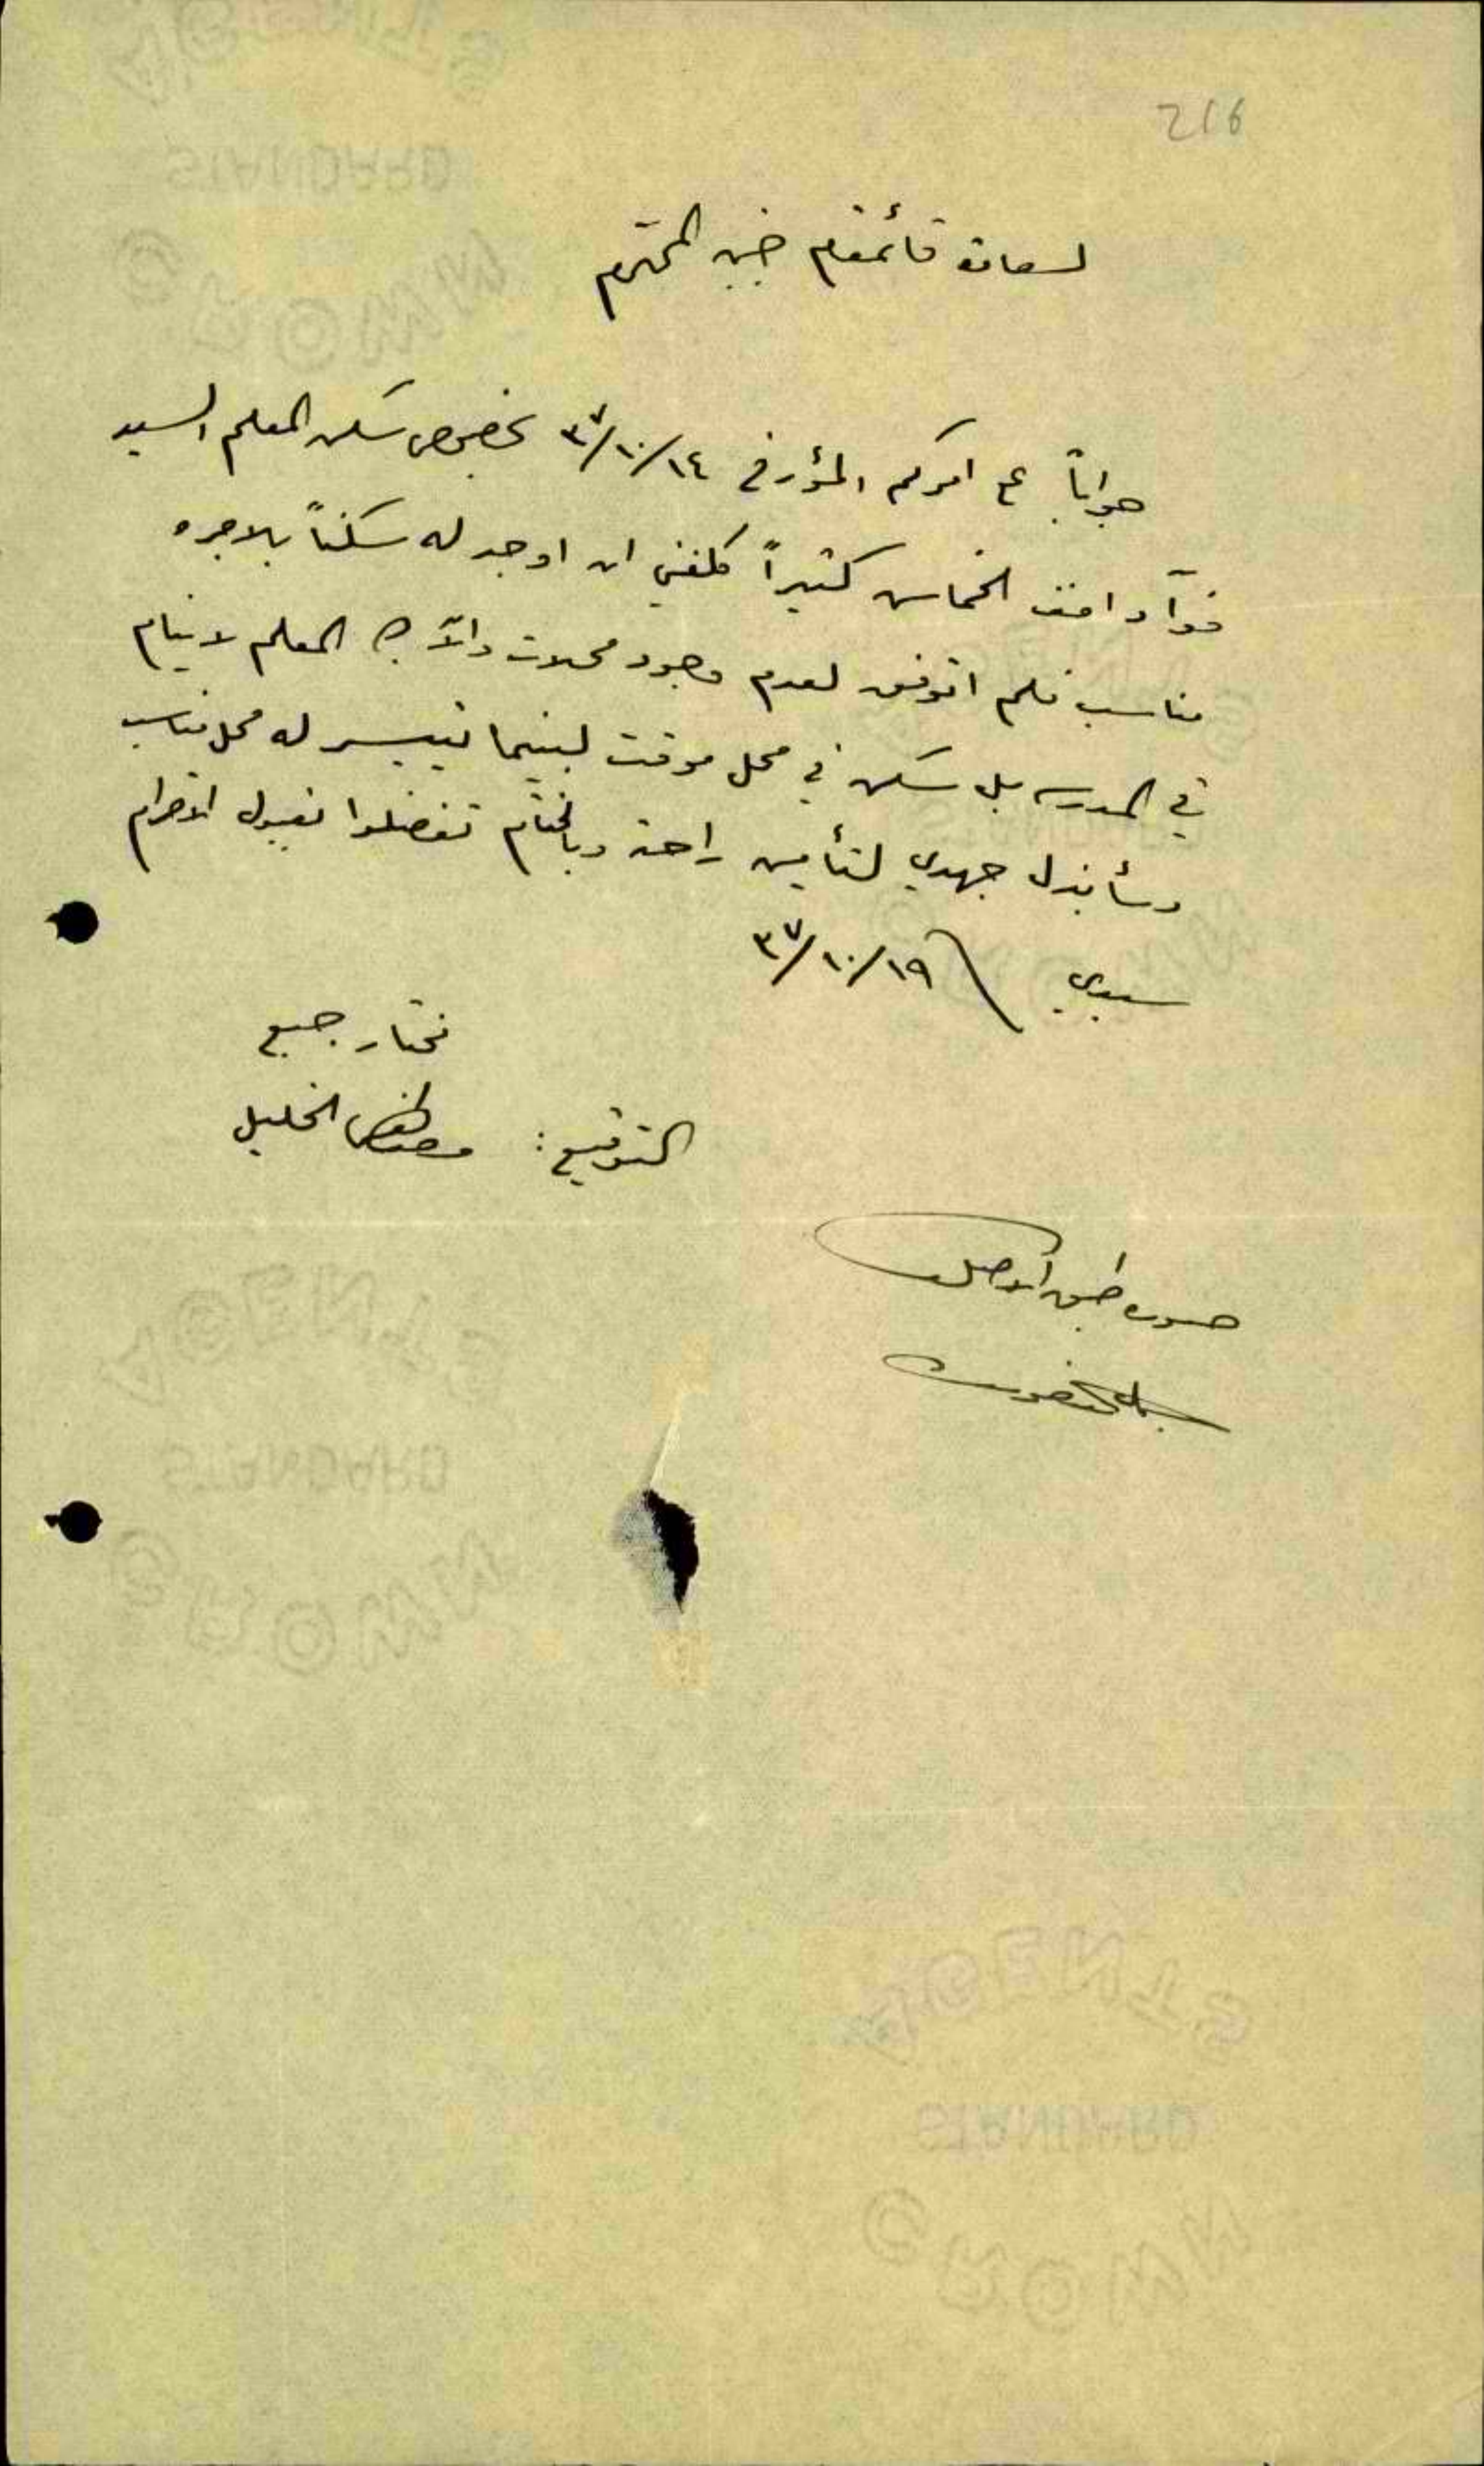 216
لسعادة قائمقام جنين المحترم
جواباً على امركم المؤرخ في ٣٧/١٠/١٤ بخصوص سكن المعلم السيد
فوآد الخماس كثيراً كلفني ان اوجد له سكناً بالاجره
مناسب فلم اتوفق لعدم وجود محلات والآن المعلم لا ينام
في المدرسه بل سكن في محل موقت لبينما تيسر له محل مناسب
وسأبذل جهدي لتأمين راحته وبالختام تفضلوا بقبول الاحترام
سيدي ٣٧/١٠/١٩
مختار جبع
التوقيع: مصطفى الخليل
صورة طبق الاصل
STANDARD
STANDARD
STANDARD